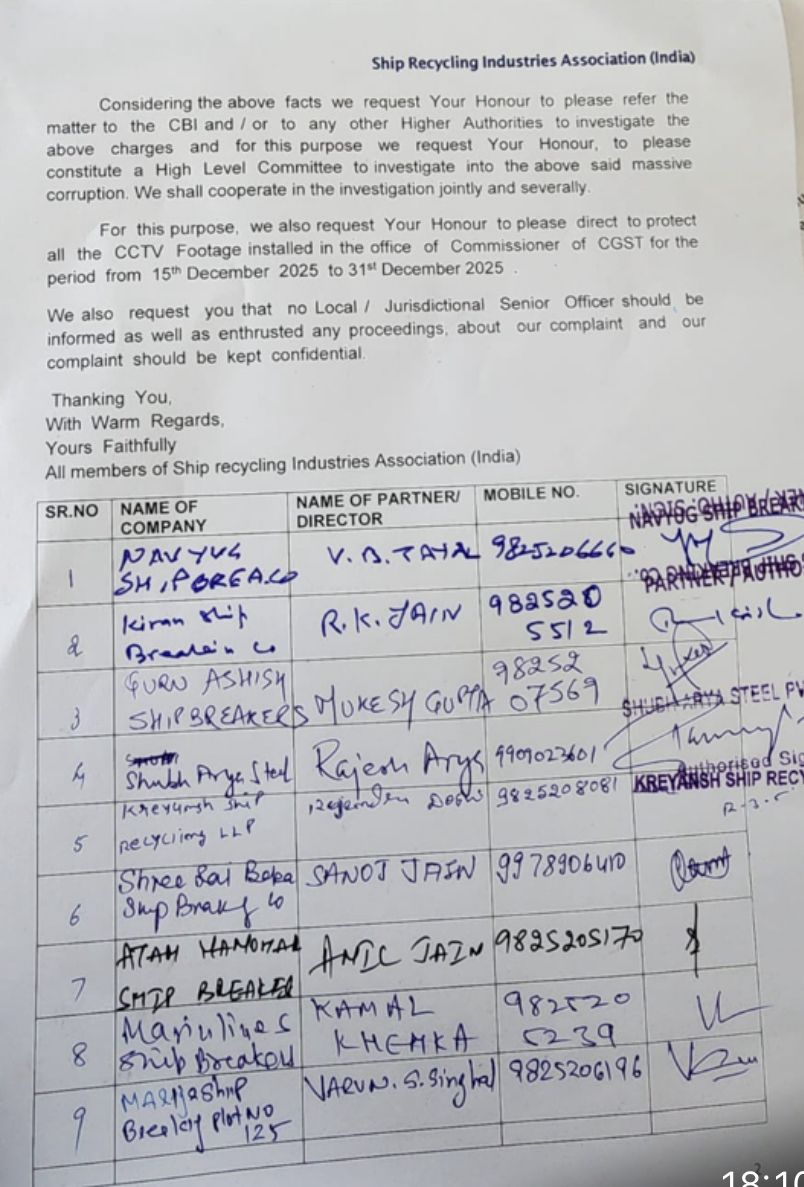 Ship Recycling Industries Association (India)
Considering the above facts we request Your Honour to please refer the
matter to the CBI and / or to any other Higher Authorities to investigate the
above charges and for this purpose we request Your Honour, to please
constitute a High Level Committee to investigate into the above said massive
corruption. We shall cooperate in the investigation jointly and severally.
For this purpose, we also request Your Honour to please direct to protect
all the CCTV Footage installed in the office of Commissioner of CGST for the
period from 15th December 2025 to 31st December 2025 .
We also request you that no Local / Jurisdictional Senior Officer should be
informed as well as enthrusted any proceedings, about our complaint and our
complaint should be kept confidential.
Thanking You,
With Warm Regards,
Yours Faithfully
All members of Ship recycling Industries Association (India)
SR.NO NAME OF COMPANY NAME OF PARTNER/ DIRECTOR MOBILE NO. SIGNATURE
NAVYUG SHIP BREAK
1 NAVYUG SHIPBREA.CO V.B.TAYAL 9825206660
PARTNER / AUTHO
2 Kiran Ship Breakin Co R.K. JAIN 982520 5512
3 GURU ASHISH SHIPBREAKERS MUKESH GUPTA 98252 07569
SHUBH ARYA STEEL PV
4 Shubh Arya Steel Rajesh Arya 9909023601
Authorised Sig
KREYANSH SHIP RECY
5 Kreyansh Ship Recycliing LLP Doshi 9825208081
6 Shree Sai Baba Ship Co SANOJ JAIN 9978906410
7 ATAM MANOHAR SHIP BREAKER ANIL JAIN 9825205170
8 Ship Breakers KAMAL KHEMKA 982520 5239
9 Ship Breaking Plot NO 125 VARUN. S. Singhal 9825206196
2
18:10